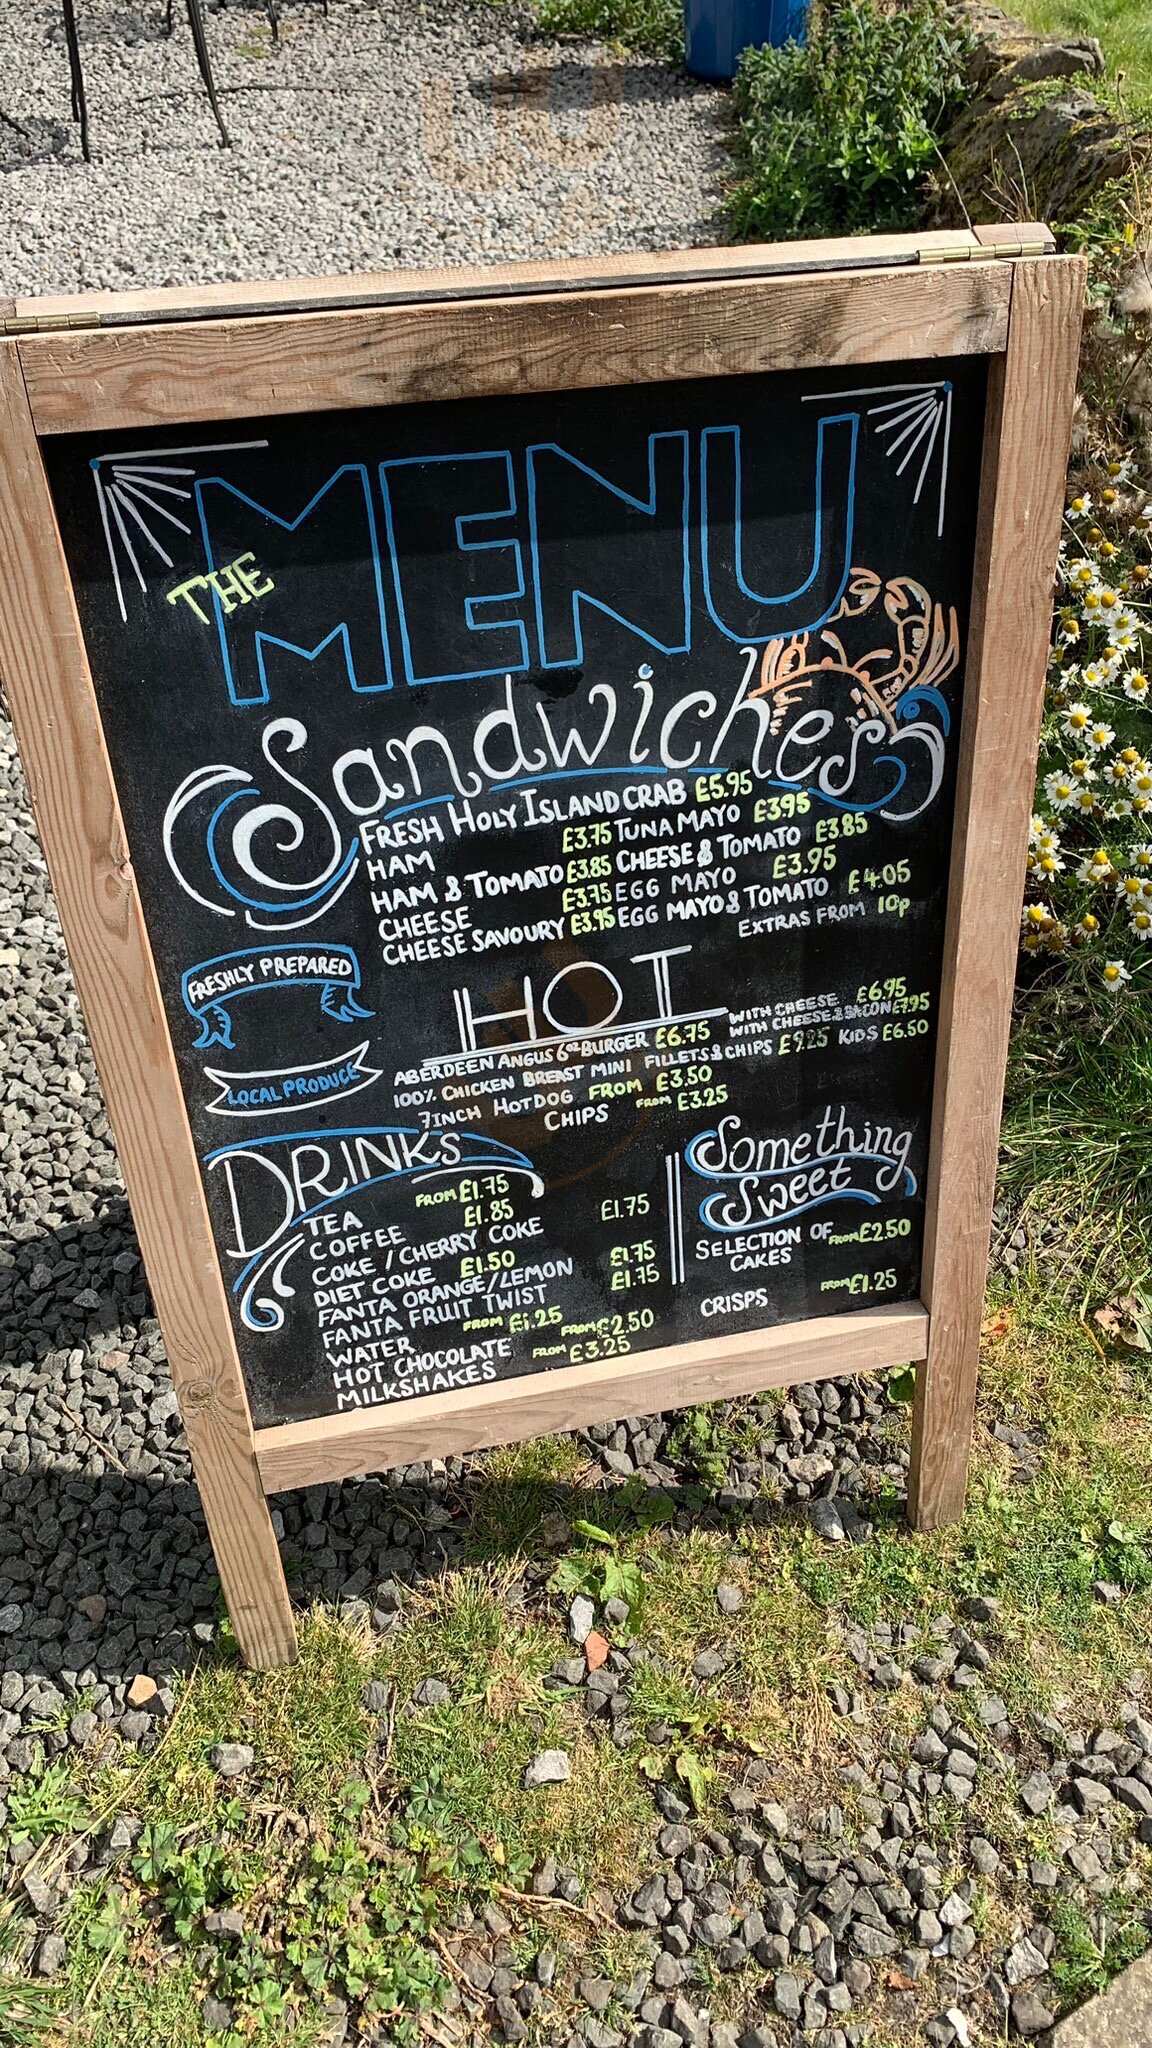 THE MENU
Sandwiches
FRESH HOLY ISLAND CRAB £5.95
HAM £3.75 TUNA MAYO £3.95
HAM & TOMATO £3.85 CHEESE & TOMATO £3.85
CHEESE £3.75 EGG MAYO £3.95
CHEESE SAVOURY £3.95 EGG MAYO & TOMATO £4.05
EXTRAS FROM 10p
FRESHLY PREPARED
HOT
LOCAL PRODUCE
ABERDEEN ANGUS 6oz BURGER £6.75 WITH CHEESE £6.95
WITH CHEESE & BACON £7.95
100% CHICKEN BREAST MINI FILLETS & CHIPS £9.25 KIDS £6.50
7INCH HOTDOG FROM £3.50
CHIPS FROM £3.25
DRINKS
TEA FROM £1.75
COFFEE £1.85
COKE / CHERRY COKE £1.75
DIET COKE £1.50
FANTA ORANGE/LEMON £1.75
FANTA FRUIT TWIST £1.75
WATER FROM £1.25
HOT CHOCOLATE FROM £2.50
MILKSHAKES FROM £3.25
Something
Sweet
SELECTION OF FROM £2.50
CAKES
CRISPS FROM £1.25